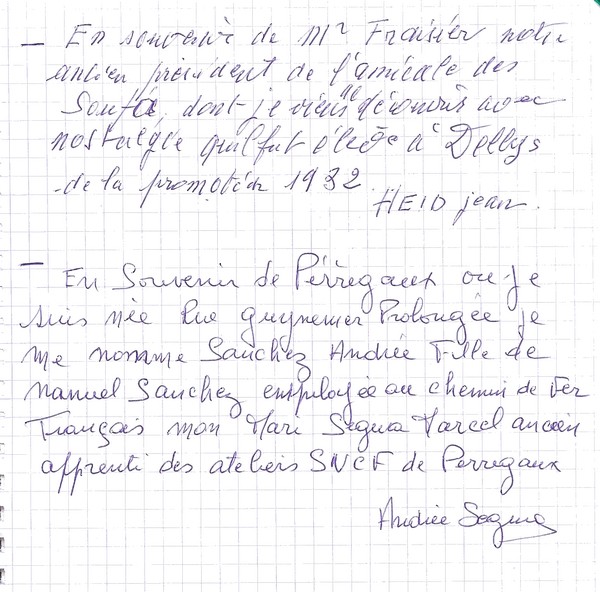 — En souvenir de Mr Fraisier notre
ancien président de l'amicale des
dont je viens de découvrir avec
nostalgie qu'il fut élève à Dellys
de la promotion 1932
HEID jean.
— En Souvenir de Pérrégaux ou je
suis née Rue guynemer Prolongée je
me nomme Sanchez Andrée Fille de
Manuel Sanchez employée au chemin de Fer
Français mon Mari Segura Marcel ancien
apprenti des ateliers SNCF de Perregaux
Andrée Segura